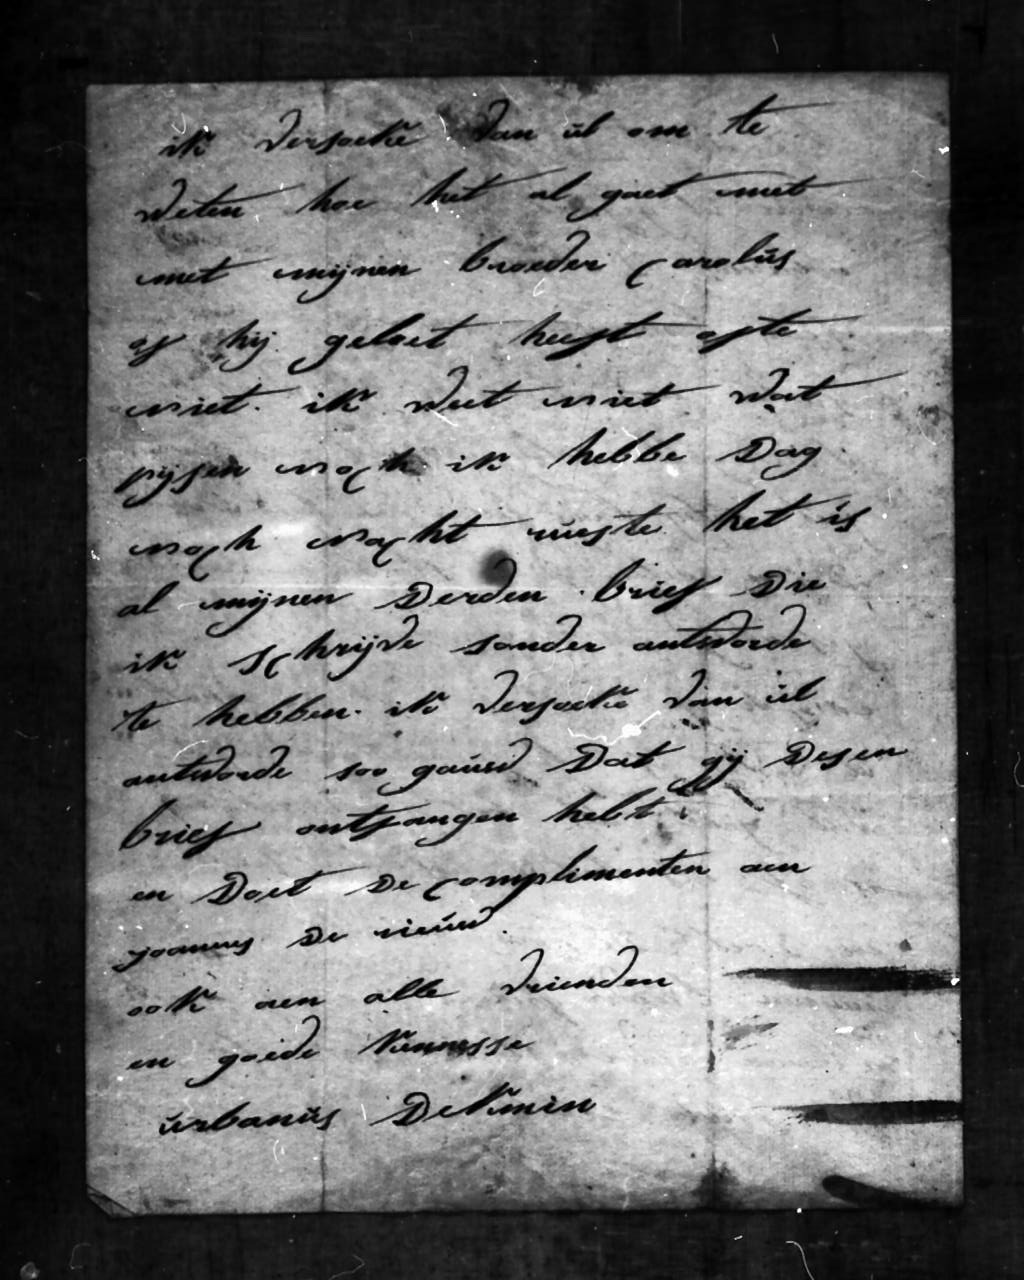 ik versoeke van ul om te
weten hoe het al gaet met
met mijnen broeder carolus
of hij geloot heeft ofte
niet. ik weet niet wat
pijsen noch ik hebbe dag
noch nacht ruste het is
al mijnen derden brief die
ik schrijve sonder antworde
te hebben. ik versoeke van ul
antworde soo gauw dat gij desen
brief ontfangen hebt
en doet de complimenten aen
joannes de nieuw.
ook aen alle vrienden
en goede kennesse
urbanus Dekmin